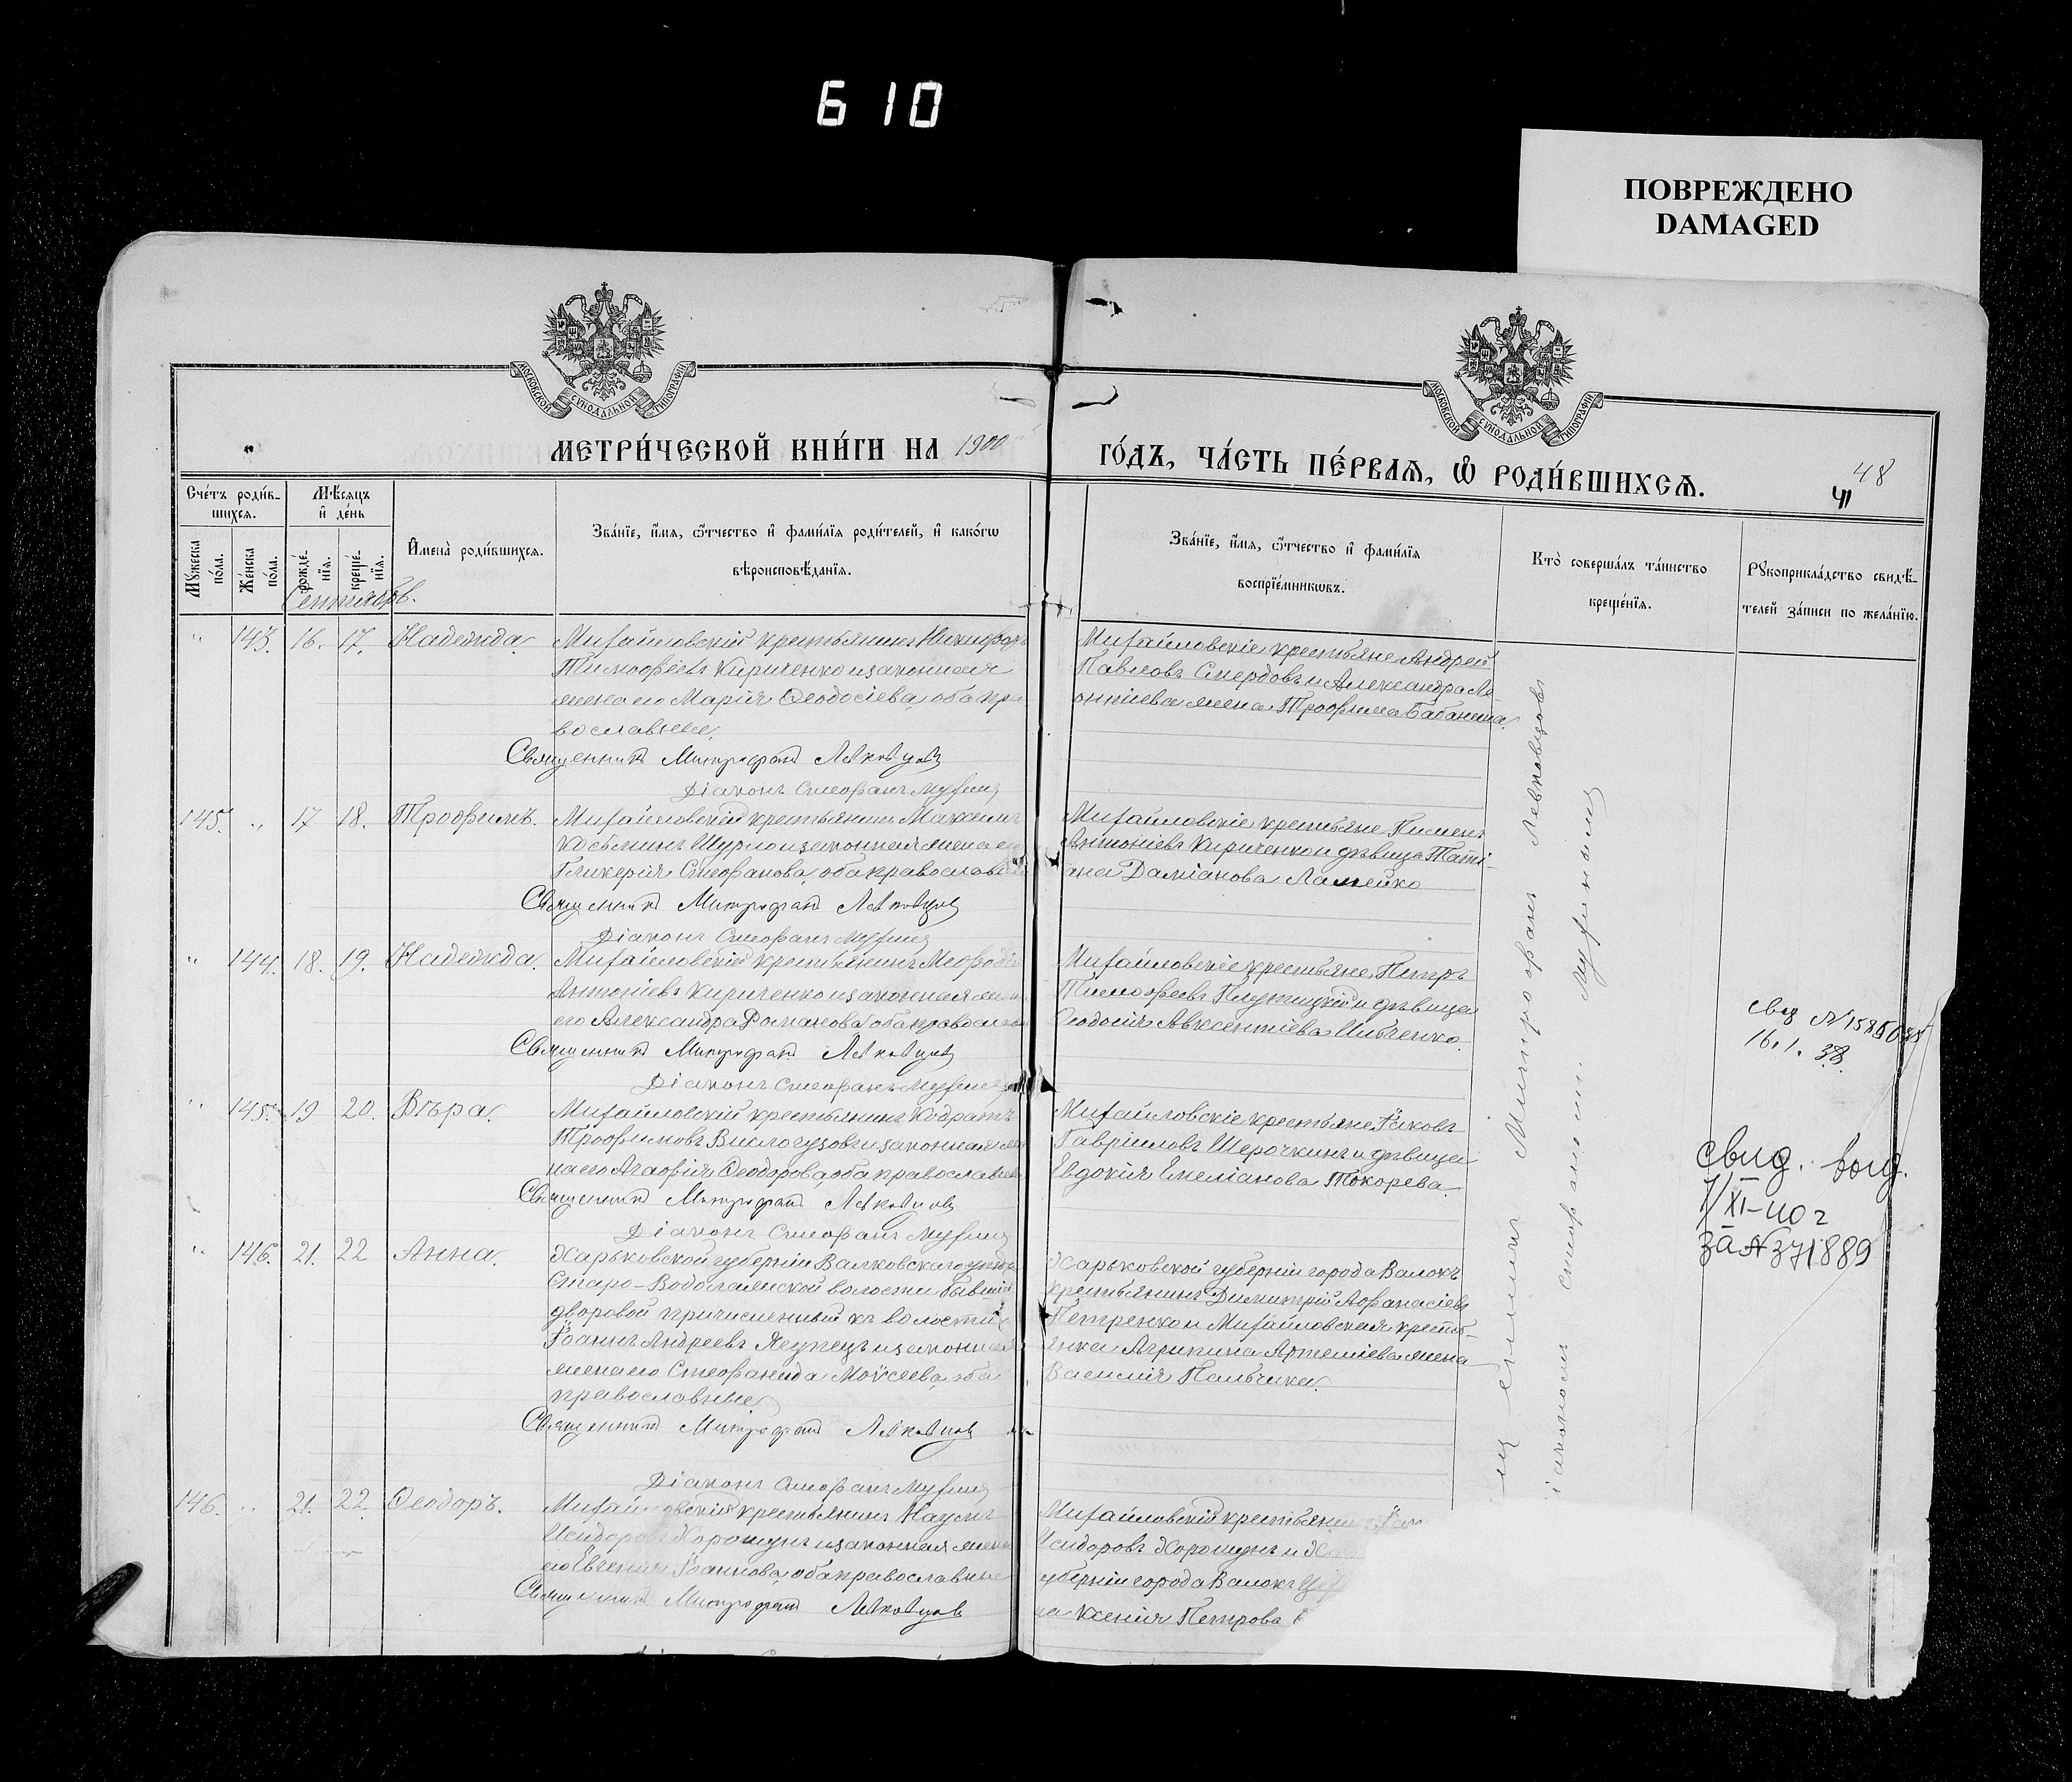 610
ПОВРЕЖДЕНО
DAMAGED
МОСКОВСКОЙ СѴНОДАЛЬНОЙ ТИПОГРАФІИ
МОСКОВСКОЙ СѴНОДАЛЬНОЙ ТИПОГРАФІИ
МЕТРИ́ЧЕСКОЙ КНИ́ГИ НА 1900
ГО́ДЪ, ЧА́СТЬ ПЕ́РВАѦ, Ѡ҆ РОДИ́ВШИХСѦ.
48
Сче́тъ роди́в-
шихся.
Мѣ́сяцъ
и҆ де́нь
Мꙋжеска по́ла.
Же́нска по́ла.
рожде́-нїѧ.
креще́-нїѧ.
И҆мена̀ роди́вшихсѧ.
Зва́нїе, и҆́мѧ, ѻ҆́тчество и҆ фами́лїѧ роди́телей, и҆ како́гѡ
вѣроисповѣ́данїѧ.
Зва́нїе, и҆́мѧ, ѻ҆́тчество и҆ фами́лїѧ
воспрїе́мникѡвъ.
Кто̀ соверша́лъ та́инство
креще́нїѧ.
Рꙋкоприкла́дство свидѣ́-
телей за́писи по жела́нїю.
Сентябрь.
" 143. 16. 17. Надежда. Михайловскій крестьянинъ Никифоръ
Тимофеевъ Кириченко и законная
жена его Марія Ѳеодосіева, оба пра
вославные.
Священникъ Митрофанъ Левковцовъ
Діаконъ Стефанъ Мухинъ
Михайловскіе крестьяне Андрей
Павловъ Смердовъ и Александра Ле-
онтіева жена Трофима Бабанина.
145. " 17 18. Трофимъ. Михайловскій крестьянинъ Максимъ
Косьминъ Шурло и законная жена его
Гликерія Стефанова, оба православн
Священникъ Митрофанъ Левковцовъ
Діаконъ Стефанъ Мухинъ
Михайловскіе крестьяне Пименъ
Антоніевъ Кириченко и дѣвица Таті-
ана Даміанова Ламейко
" 144. 18. 19. Надежда. Михайловскій крестьянинъ Меѳодій
Антоніевъ Кириченко и законная жена
его Александра Романова, оба православн
Священникъ Митрофанъ Левковцовъ
Діаконъ Стефанъ Мухинъ
Михайловскіе крестьяне Петръ
Тимофеевъ и дѣвица
Ѳеодосія Авксентіева Ивченко.
свид №
16.1.38.
" 145. 19 20. Вѣра. Михайловскій крестьянинъ Кодратъ
Трофимовъ Вислогузовъ и законная же
на его Агафія Ѳеодорова, оба православные
Священникъ Митрофанъ Левковцовъ
Діаконъ Стефанъ Мухинъ
Михайловскіе крестьяне Іаковъ
Гавріиловъ Шерочкинъ и дѣвица
Евдокія Емеліанова Токорева.
свид. выд.
7/XI-40 г
за № 371889
" 146. 21. 22 Анна. Харьковской губерніи Валковскаго уѣзда
Старо-Водолажской волости бывшій
дворовой причисленный къ волости
Іоаннъ Андреевъ и законная
жена его Стефанида Моѵсеева, оба
православные.
Священникъ Митрофанъ Левковцовъ
Діаконъ Стефанъ Мухинъ
Харьковской губерніи города Валокъ
крестьянинъ Димитрій Аѳанасіевъ
Петренко и Михайловская кресть-
янка Агрипина Артеміева жена
Василія Пальчика.
146. " 21. 22. Ѳеодоръ. Михайловскій крестьянинъ Наумъ
Исидоровъ Хорошунъ и законная жена
его Евгенія Іоаннова, оба православные
Священникъ Митрофанъ Левковцовъ
Михайловскій крестьянинъ
Исидоровъ Хорошунъ и
губерніи города Валокъ
Ксенія Петрова
Священникъ Митрофанъ Левковцовъ
съ діакономъ Стефаномъ Мухинымъ